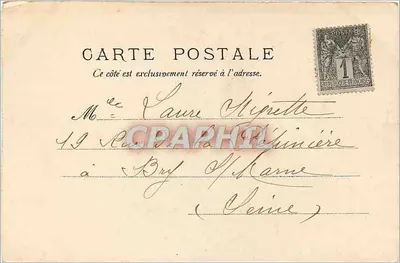 CARTE POSTALE
Ce côté est exclusivement réservé à l'adresse.
1
Mlle Laure
CPAPHIL
19 Rue de la Pépinière
à Bry S/Marne
(Seine)